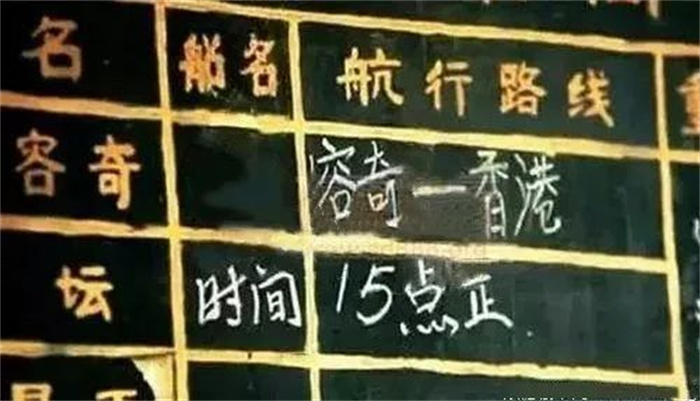 名 船名 航行路线
容奇 容奇—香港
坛 时间 15点正